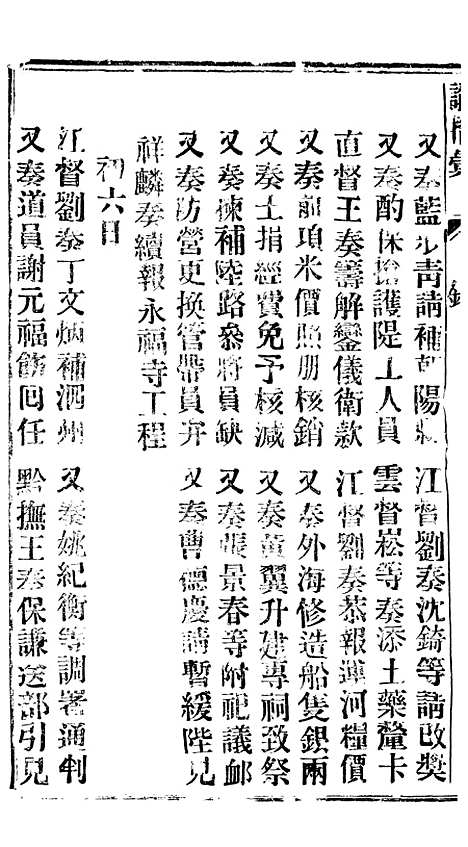 諭摺彙
又奏藍少青請補朝陽縣
又奏酌保搶護隄工人員
直督王奏籌解鑾儀衛款
又奏前項米價照册核銷
又奏士捐經費免予核減
又奏揀補陸路叅將員缺
又奏防營更換管帶員弁
祥麟奏續報永福寺工程
江督劉奏沈錡等請改獎
雲督崧等奏添土藥釐卡
江督劉奏恭報運河糧價
又奏外海修造船隻銀兩
又奏黃翼升建專祠致祭
又奏張景春等附祀議卹
又奏曹德慶請暫緩陛見
初六日
江督劉奏丁文炳補泗州
又奏道員謝元福飭回任
又奏姚紀衡等調署通判
黔撫王奏保謙送部引見